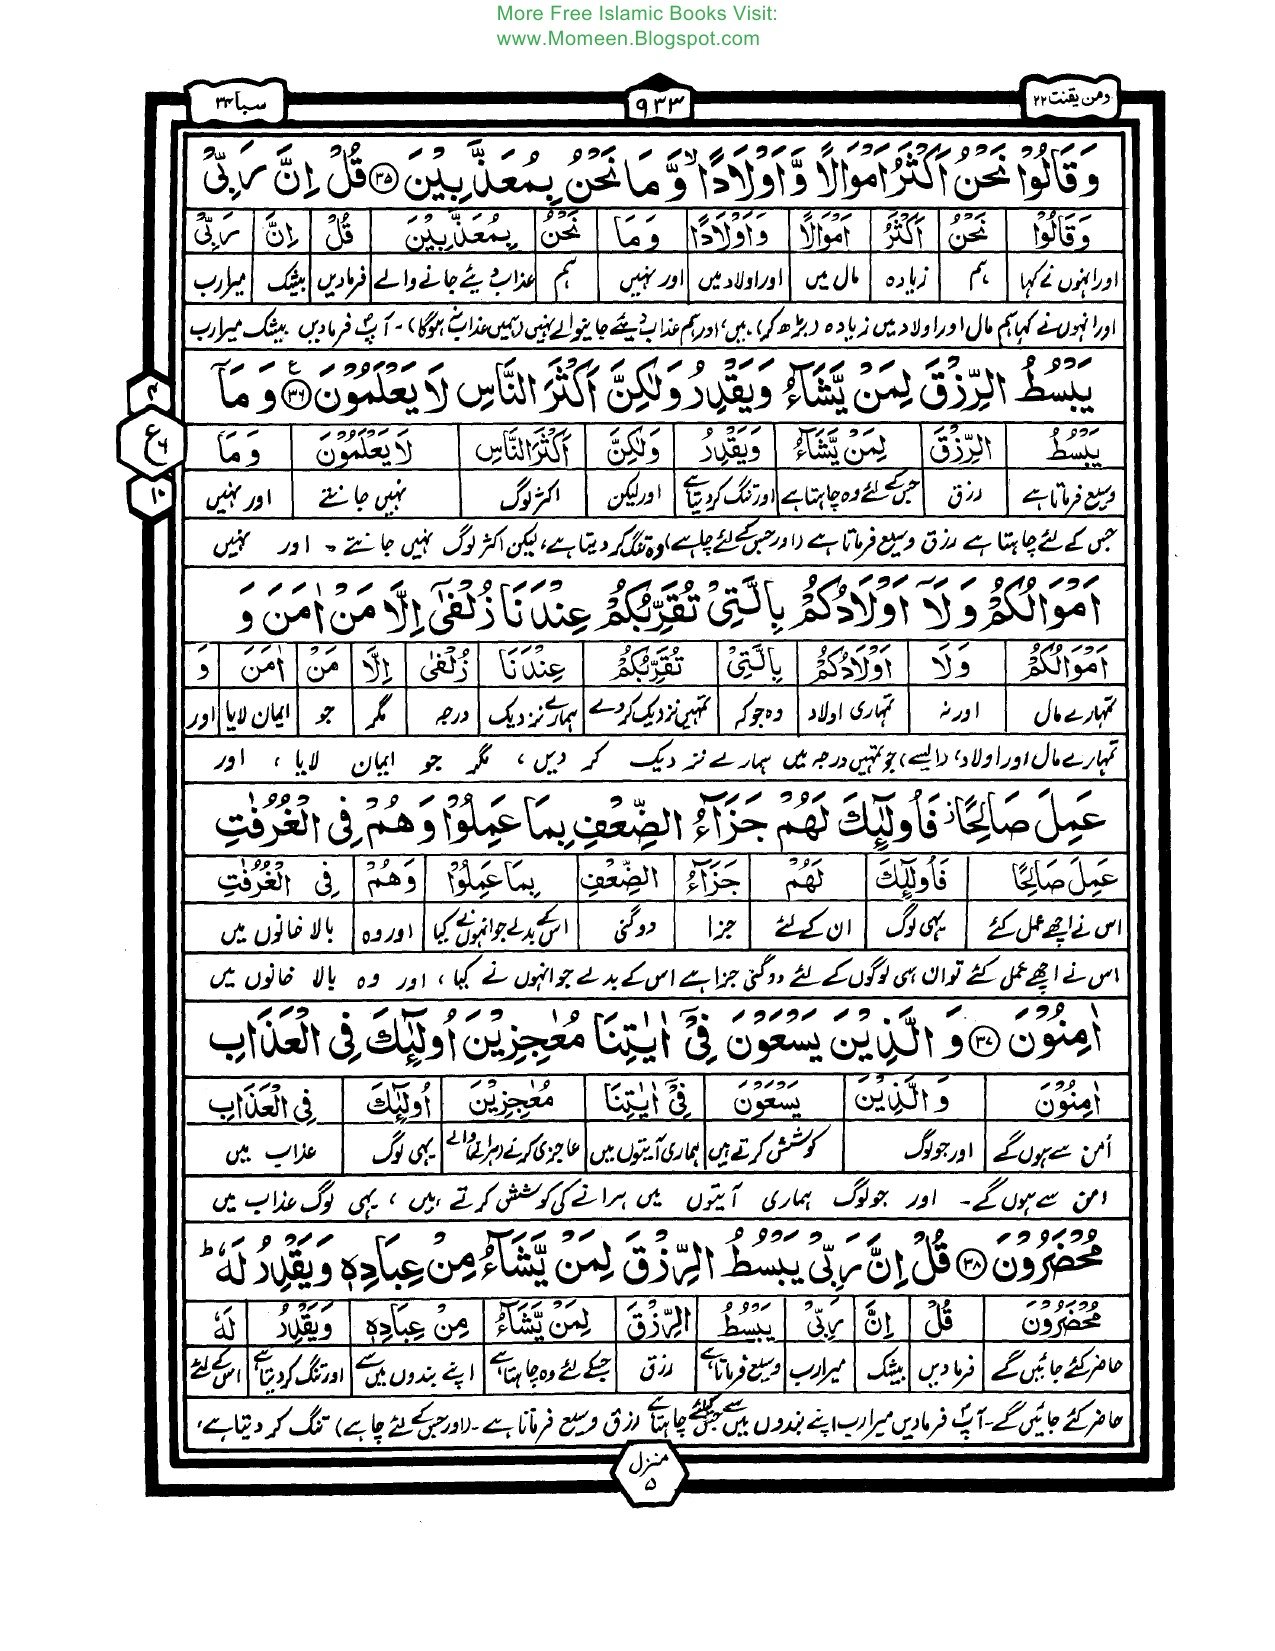 More Free Islamic Books Visit:
www.Momeen.Blogspot.com
ومن یقنت ۲۲
۹۳۳
سبا ۳۴
وَقَالُوْا نَحْنُ اَكْثَرُ اَمْوَالًا وَّاَوْلَادًاۙ وَّمَا نَحْنُ بِمُعَذَّبِیْنَ ﴿۳۵﴾ قُلْ اِنَّ رَبِّیْ
وَقَالُوْا نَحْنُ اَكْثَرُ اَمْوَالًا وَاَوْلَادًا وَمَا نَحْنُ بِمُعَذَّبِیْنَ قُلْ اِنَّ رَبِّیْ
اور انہوں نے کہا ہم زیادہ مال میں اور اولاد میں اور نہیں ہم عذاب دیئے جانے والے فرمادیں بیشک میرا رب
اور انہوں نے کہا ہم مال اور اولاد میں زیادہ (بڑھ کر) ہیں، اور ہم عذاب دیئے جانیوالے نہیں (ہمیں عذاب نہ ہوگا)۔ آپؐ فرمادیں بیشک میرا رب
یَبْسُطُ الرِّزْقَ لِمَنْ یَّشَآءُ وَیَقْدِرُ وَلٰكِنَّ اَكْثَرَ النَّاسِ لَا یَعْلَمُوْنَ ﴿۳۶﴾ وَمَآ
یَبْسُطُ الرِّزْقَ لِمَنْ یَّشَآءُ وَیَقْدِرُ وَلٰكِنَّ اَكْثَرَ النَّاسِ لَا یَعْلَمُوْنَ وَمَآ
وسیع فرماتا ہے رزق جس کے لئے وہ چاہتا ہے اور تنگ کردیتا ہے اور لیکن اکثر لوگ نہیں جانتے اور نہیں
۴
ع ۶
۱۰
جس کے لئے چاہتا ہے رزق وسیع فرماتا ہے (اور جس کے لئے چاہے) وہ تنگ کر دیتا ہے، لیکن اکثر لوگ نہیں جانتے۔ اور نہیں
اَمْوَالُكُمْ وَلَآ اَوْلَادُكُمْ بِالَّتِیْ تُقَرِّبُكُمْ عِنْدَنَا زُلْفٰۤی اِلَّا مَنْ اٰمَنَ وَ
اَمْوَالُكُمْ وَلَآ اَوْلَادُكُمْ بِالَّتِیْ تُقَرِّبُكُمْ عِنْدَنَا زُلْفٰی اِلَّا مَنْ اٰمَنَ وَ
تمہارے مال اور نہ تمہاری اولاد وہ جو کہ تمہیں نزدیک کردے ہمارے نزدیک درجہ مگر جو ایمان لایا اور
تمہارے مال اور اولاد، (ایسے) جو تمہیں درجہ میں ہمارے نزدیک کر دیں، مگر جو ایمان لایا، اور
عَمِلَ صَالِحًا فَاُولٰٓئِكَ لَهُمْ جَزَآءُ الضِّعْفِ بِمَا عَمِلُوْا وَهُمْ فِی الْغُرُفٰتِ
عَمِلَ صَالِحًا فَاُولٰٓئِكَ لَهُمْ جَزَآءُ الضِّعْفِ بِمَا عَمِلُوْا وَهُمْ فِی الْغُرُفٰتِ
اس نے اچھے عمل کئے یہی لوگ ان کے لئے جزا دوگنی اس کے بدلے جو انہوں نے کیا اور وہ بالا خانوں میں
اس نے اچھے عمل کئے تو ان ہی لوگوں کے لئے دوگنی جزا ہے اس کے بدلے جو انہوں نے کیا، اور وہ بالا خانوں میں
اٰمِنُوْنَ ﴿۳۷﴾ وَالَّذِیْنَ یَسْعَوْنَ فِیْۤ اٰیٰتِنَا مُعٰجِزِیْنَ اُولٰٓئِكَ فِی الْعَذَابِ
اٰمِنُوْنَ وَالَّذِیْنَ یَسْعَوْنَ فِیْۤ اٰیٰتِنَا مُعٰجِزِیْنَ اُولٰٓئِكَ فِی الْعَذَابِ
امن سے ہوں گے اور جو لوگ کوشش کرتے ہیں ہماری آیتوں میں عاجز کرنے (ہرانے) والے یہی لوگ عذاب میں
امن سے ہوں گے۔ اور جو لوگ ہماری آیتوں میں ہرانے کی کوشش کرتے ہیں، یہی لوگ عذاب میں
مُحْضَرُوْنَ ﴿۳۸﴾ قُلْ اِنَّ رَبِّیْ یَبْسُطُ الرِّزْقَ لِمَنْ یَّشَآءُ مِنْ عِبَادِهٖ وَیَقْدِرُ لَهٗ ؕ
مُحْضَرُوْنَ قُلْ اِنَّ رَبِّیْ یَبْسُطُ الرِّزْقَ لِمَنْ یَّشَآءُ مِنْ عِبَادِهٖ وَیَقْدِرُ لَهٗ
حاضر کئے جائیں گے فرمادیں بیشک میرا رب وسیع فرماتا ہے رزق جسکے لئے وہ چاہتا ہے اپنے بندوں میں سے اور تنگ کردیتا ہے اس کے لئے
حاضر کئے جائیں گے۔ آپؐ فرمادیں میرا رب اپنے بندوں میں سے جس کیلئے چاہتا ہے رزق وسیع فرماتا ہے۔ (اور جس کے لئے چاہے) تنگ کر دیتا ہے،
منزل ۵